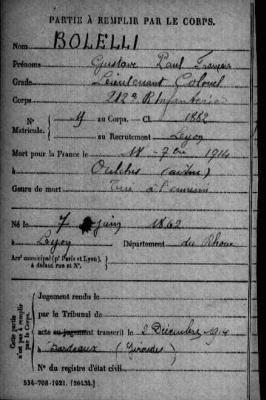 PARTIE À REMPLIR PAR LE CORPS.
Nom BOLELLI
Prénoms Gustave Paul François
Grade Lieutenant Colonel
Corps 212e R Infanterie
N° au Corps. — Cl. 1882
Matricule. au Recrutement Lyon
Mort pour la France le 1914
à Oulches (aisne)
Genre de mort Tué à l'ennemi
Né le 7 juin 1862
à Lyon Département du Rhône
Arr¹ municipal (pʳ Paris et Lyon),
à défaut rue et N°.
Cette partie
n'est pas à remplir
par le Corps.
Jugement rendu le
par le Tribunal de
acte ou jugement transcrit le 2 Décembre 1914
à Bordeaux (Gironde)
N° du registre d'état civil
534-708-1921. [26434.]